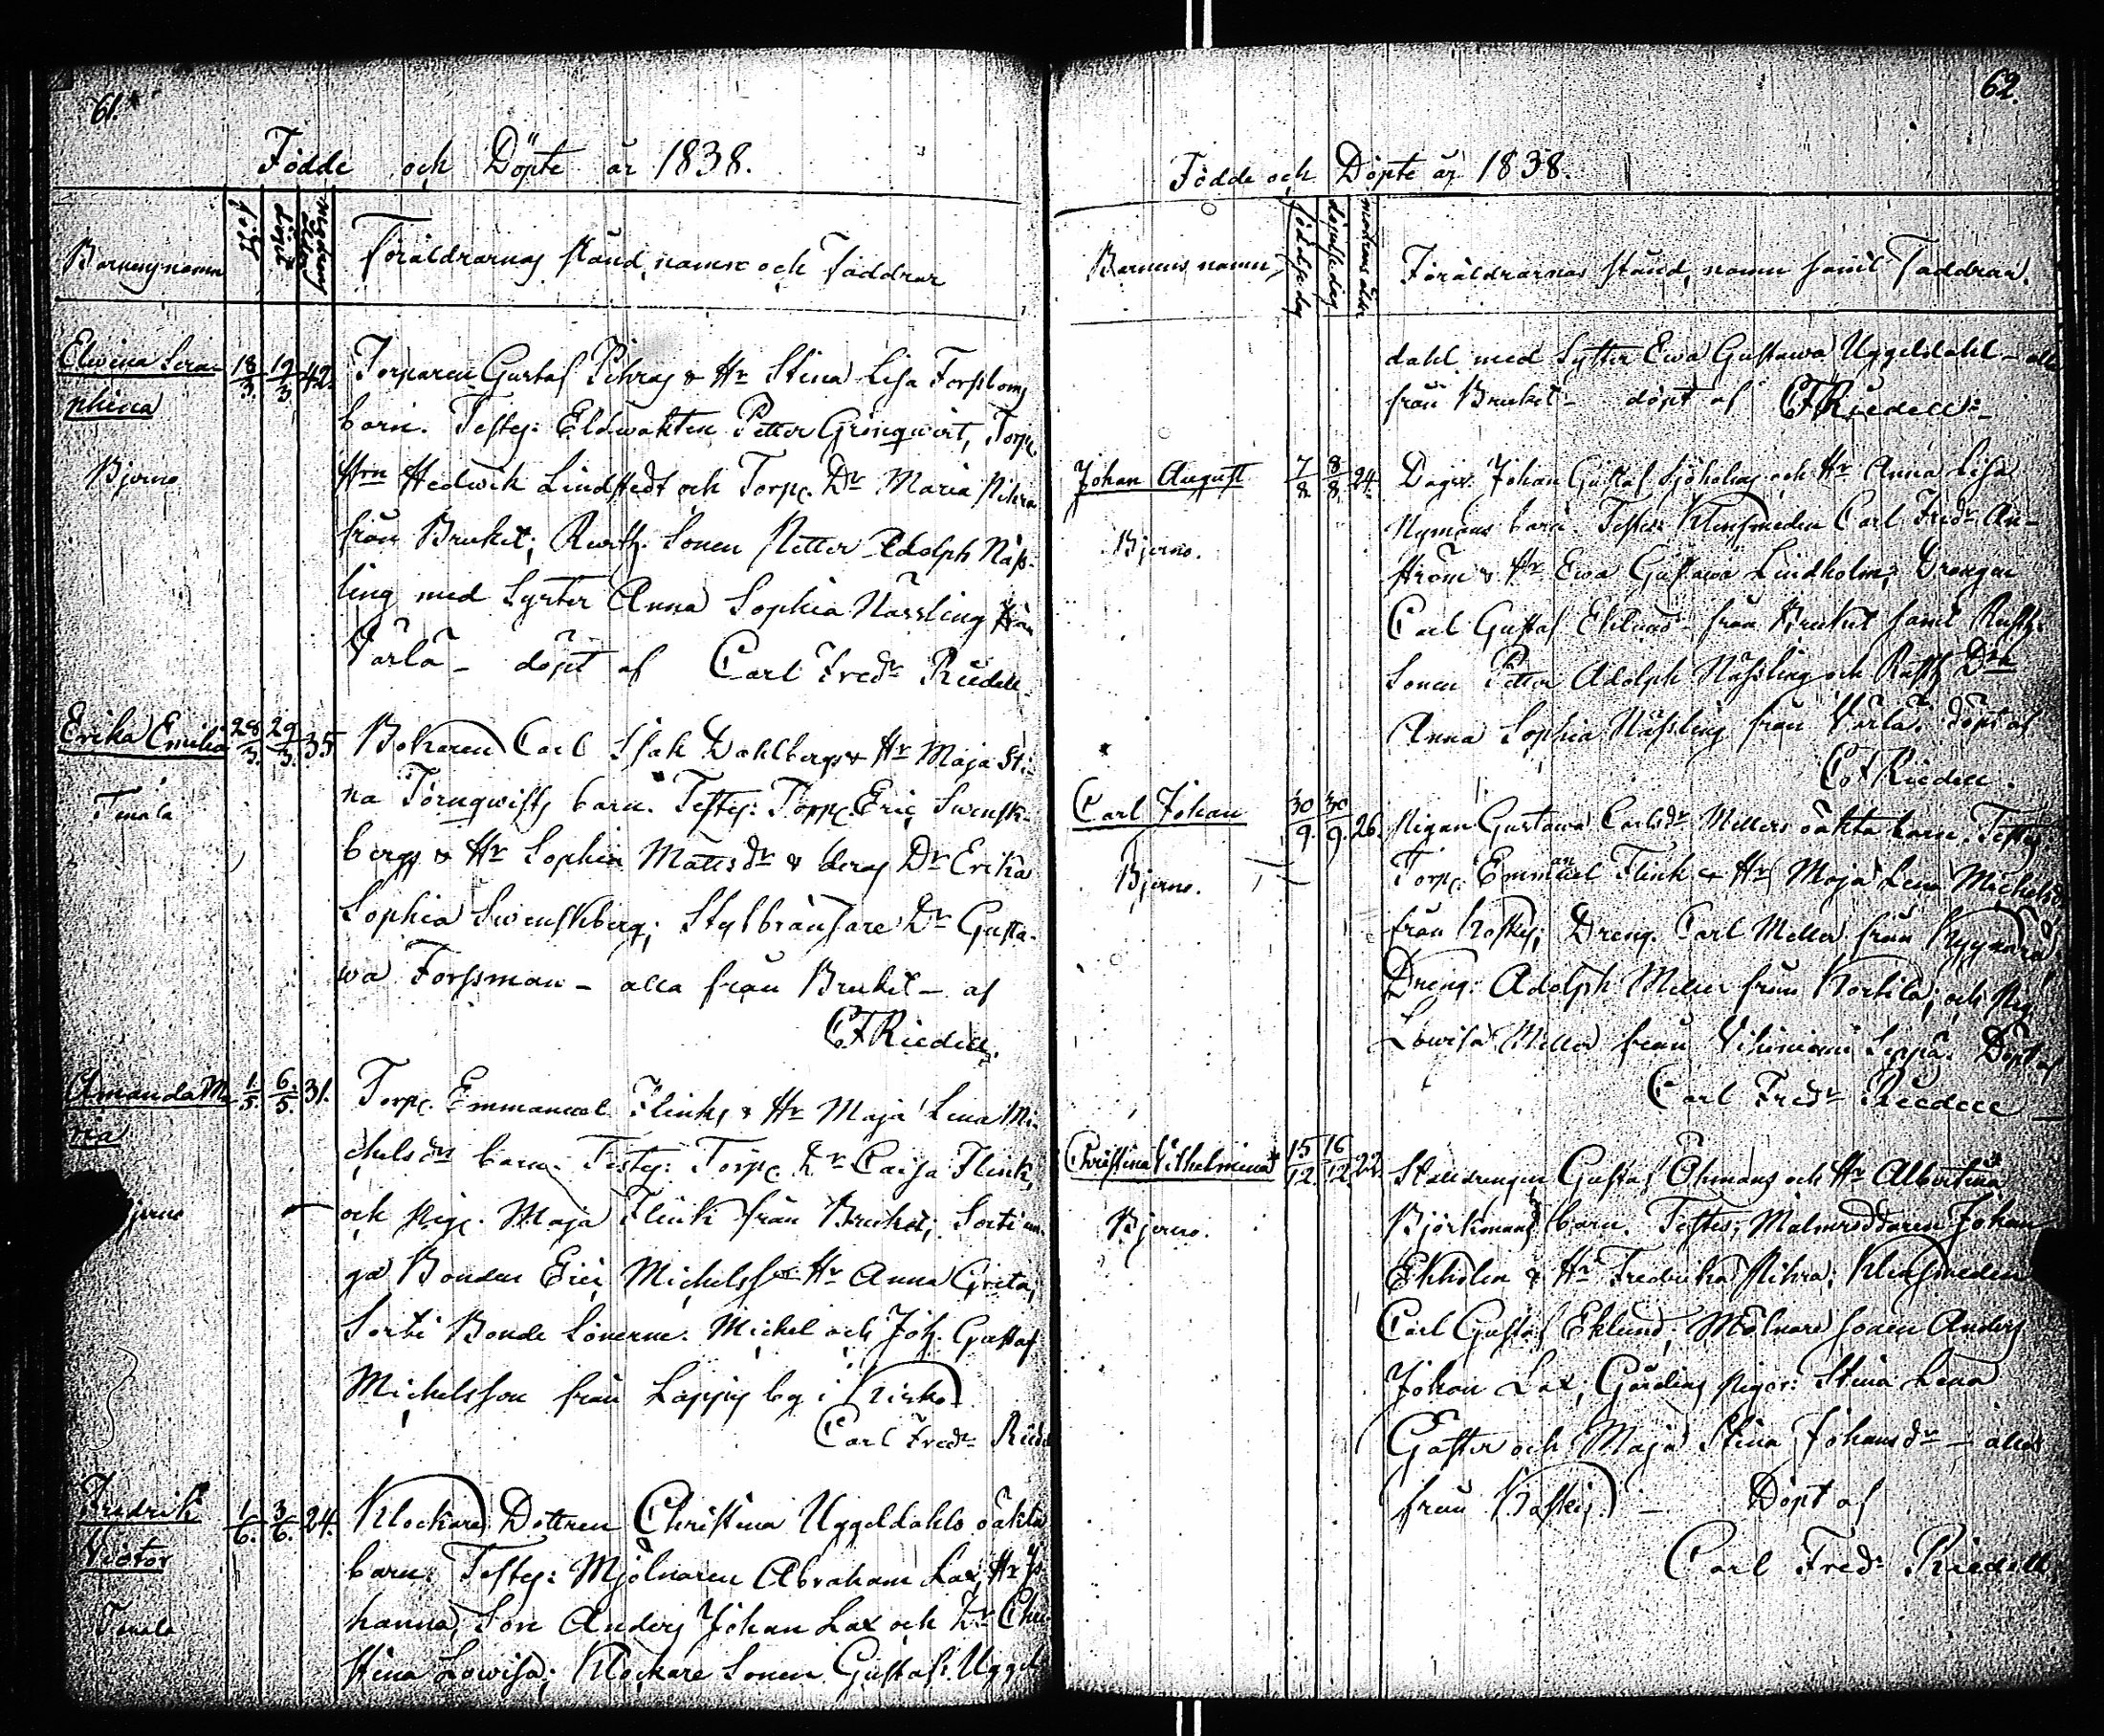 61.
Födde och Döpte år 1838.
Barnens namn
född
döpt
Föräldrarnas stånd, namn och Faddrar
Elwina Sera-
phina
Bjerno
18/3. 19/3 42.
Torparen Gustaf Pihras & Hu Stina Lisa Forsbloms
barn. Testes: Eldwakten Petter Grönqwist, Torp.
Hrn Hedwik Lindstedt och Torp. Dr Maria Pihra
från Bruket; Rusth. Sonen Petter Adolph Näss-
ling med Syster Anna Sophia Nässling från
Varla – döpt af Carl Fredr Riedell.
Erika Emilia
Tenala
28/3. 29/3. 35
Bokaren Carl Isak Dahlbergs & Hu Maja Sti-
na Törnqwists barn. Testes: Torp. Eric Swensk-
bergs & Hu Sophia Mattsdr & deras Dr Erika
Sophia Swenskberg; Dr Gusta-
wa Forssman – alla från Bruket – af
CFRiedell.
Amanda Ma-
ria
1/5. 6/5. 31.
Torp. Emmanuel Flinks & Hu Maja Lena Mi-
chelsdrs barn. Testes: Torp. Dr Caisa Flink,
och Pig. Maja Flink från Bruket;
Bonden Eric Michelsson Hu Anna Greta,
Bonde Sönerne. Michel och Joh. Gustaf
Michelsson från by i Kisko
Carl Fredr Riedell
Fredrik
Victor
Tenala
1/6. 3/6. 24.
Klockare Dottren Christina Uggeldahls oäkta
barn. Testes: Mjölnaren Abraham Lax, Hu Jo-
hanna, Son Anders Johan Lax och Dr Chri-
stina Lowisa; Klockare Sonen Gustaf Uggel-
62.
Födde och Döpte år 1838.
Barnens namn
födelse dag
döpelse dag
modrens ålder
Föräldrarnas stånd, namn samt Faddrar.
dahl med Syster Ewa Gustawa Uggeldahl – alla
från Bruket – döpt af CFRiedell –
Johan August
Bjerno.
7/8. 8/8. 24.
Dagsv. Johan Gustaf Sjöholms och Hu Anna Lisa
Nymans barn. Testes: Klensmeden Carl Fredr An-
ström & Hu Ewa Gustawa Lindholm; Drengen
Carl Gustaf Eklund – från Bruket samt Rusth.
Sonen Petter Adolph Nässling och Rusth. Drn
Anna Sophia Nässling från Varla. döpt af
CFRiedell.
Carl Johan
Bjerno.
30/9. 30/9. 26.
Pigan Gustawa Carlsdr Mellers oäkta barn. Testes:
Torp. Emmanuel Flink & Hu Maja Lena Michelsdr
från Koskis; Dreng. Carl Meller från
Dreng: Adolph Meller från Kortila; och Pig.
Lowisa Meller från Döpt af
Carl Fredr Riedell –
Christina Wilhelmina
Bjerno.
15/12. 16/12. 22
Stalldrengen Gustaf Öhmans och Hu Albertina
Björkmans barn. Testes; Malmroddaren Johan
Ekholm & Hu Fredrika Pihra; Klensmeden
Carl Gustaf Eklund; Mölnare sonen Anders
Johan Lax; Gårdens Pigor: Stina Lena
Gäster och Maja Stina Johansdr – alla
från Koskis. – Döpt af
Carl Fredr Riedell.